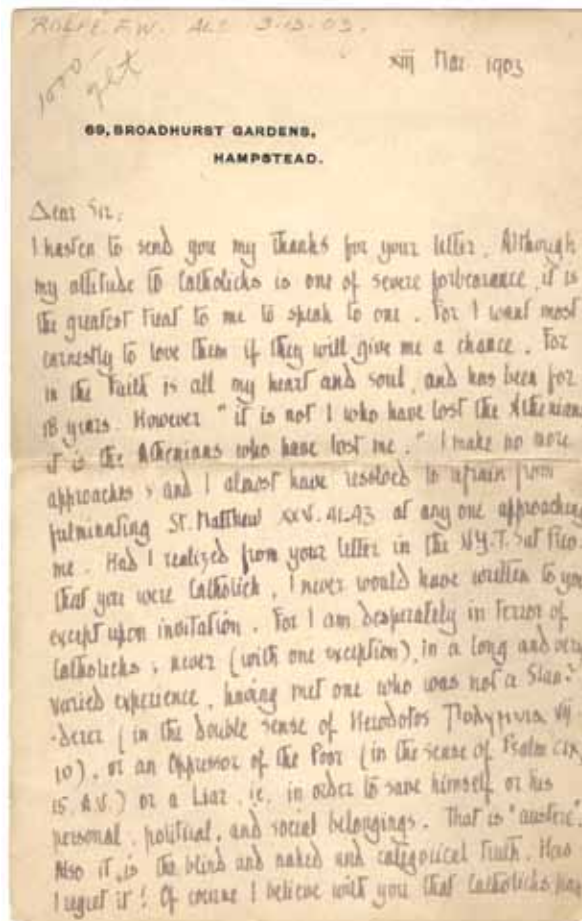 ROLFE. F.W. ALS 3-13-03.
xiij Mar. 1903
69, BROADHURST GARDENS,
HAMPSTEAD.
Dear Sir:
I hasten to send you my thanks for your letter. Although
my attitude to Catholicks is one of severe forbearance, it is
the greatest treat to me to speak to one. For I want most
earnestly to love them if they will give me a chance. For
in the Faith is all my heart and soul, and has been for
18 years. However "it is not I who have lost the Athenians
it is the Athenians who have lost me." I make no more
approaches; and I almost have resolved to refrain from
fulminating St. Matthew XXV. 41-43 at any one approaching
me. Had I realized from your letter in the N.Y.T. Sat
that you were Catholick, I never would have written to you
except upon invitation. For I am desperately in terror of
Catholicks; never (with one exception), in a long and very
varied experience, having met one who was not a Slan-
-derer (in the double sense of Herodotos
10), or an Oppressor of the Poor (in the sense of Psalm
15. A.V.) or a Liar, i.e. in order to save himself or his
personal, political, and social belongings. That is "austere".
Also it is the blind and naked and categorical truth. How
I regret it! Of course I believe with you that Catholicks